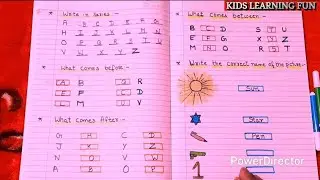 KIDS LEARNING FUN
* Write in Series :-
A B C D E F G
H I J K L M N
O P Q R S T U
V W X Y Z
* What comes before :-
A B Q R
E F C D
L M U V
* What comes After :-
G H C D
J K Y Z
N O V W
A B O P
* What comes between :-
B C D S T U
E F G X Y Z
M N O R S T
* Write the correct name of the picture :-
Sun
Star
Pen
1
PowerDirector